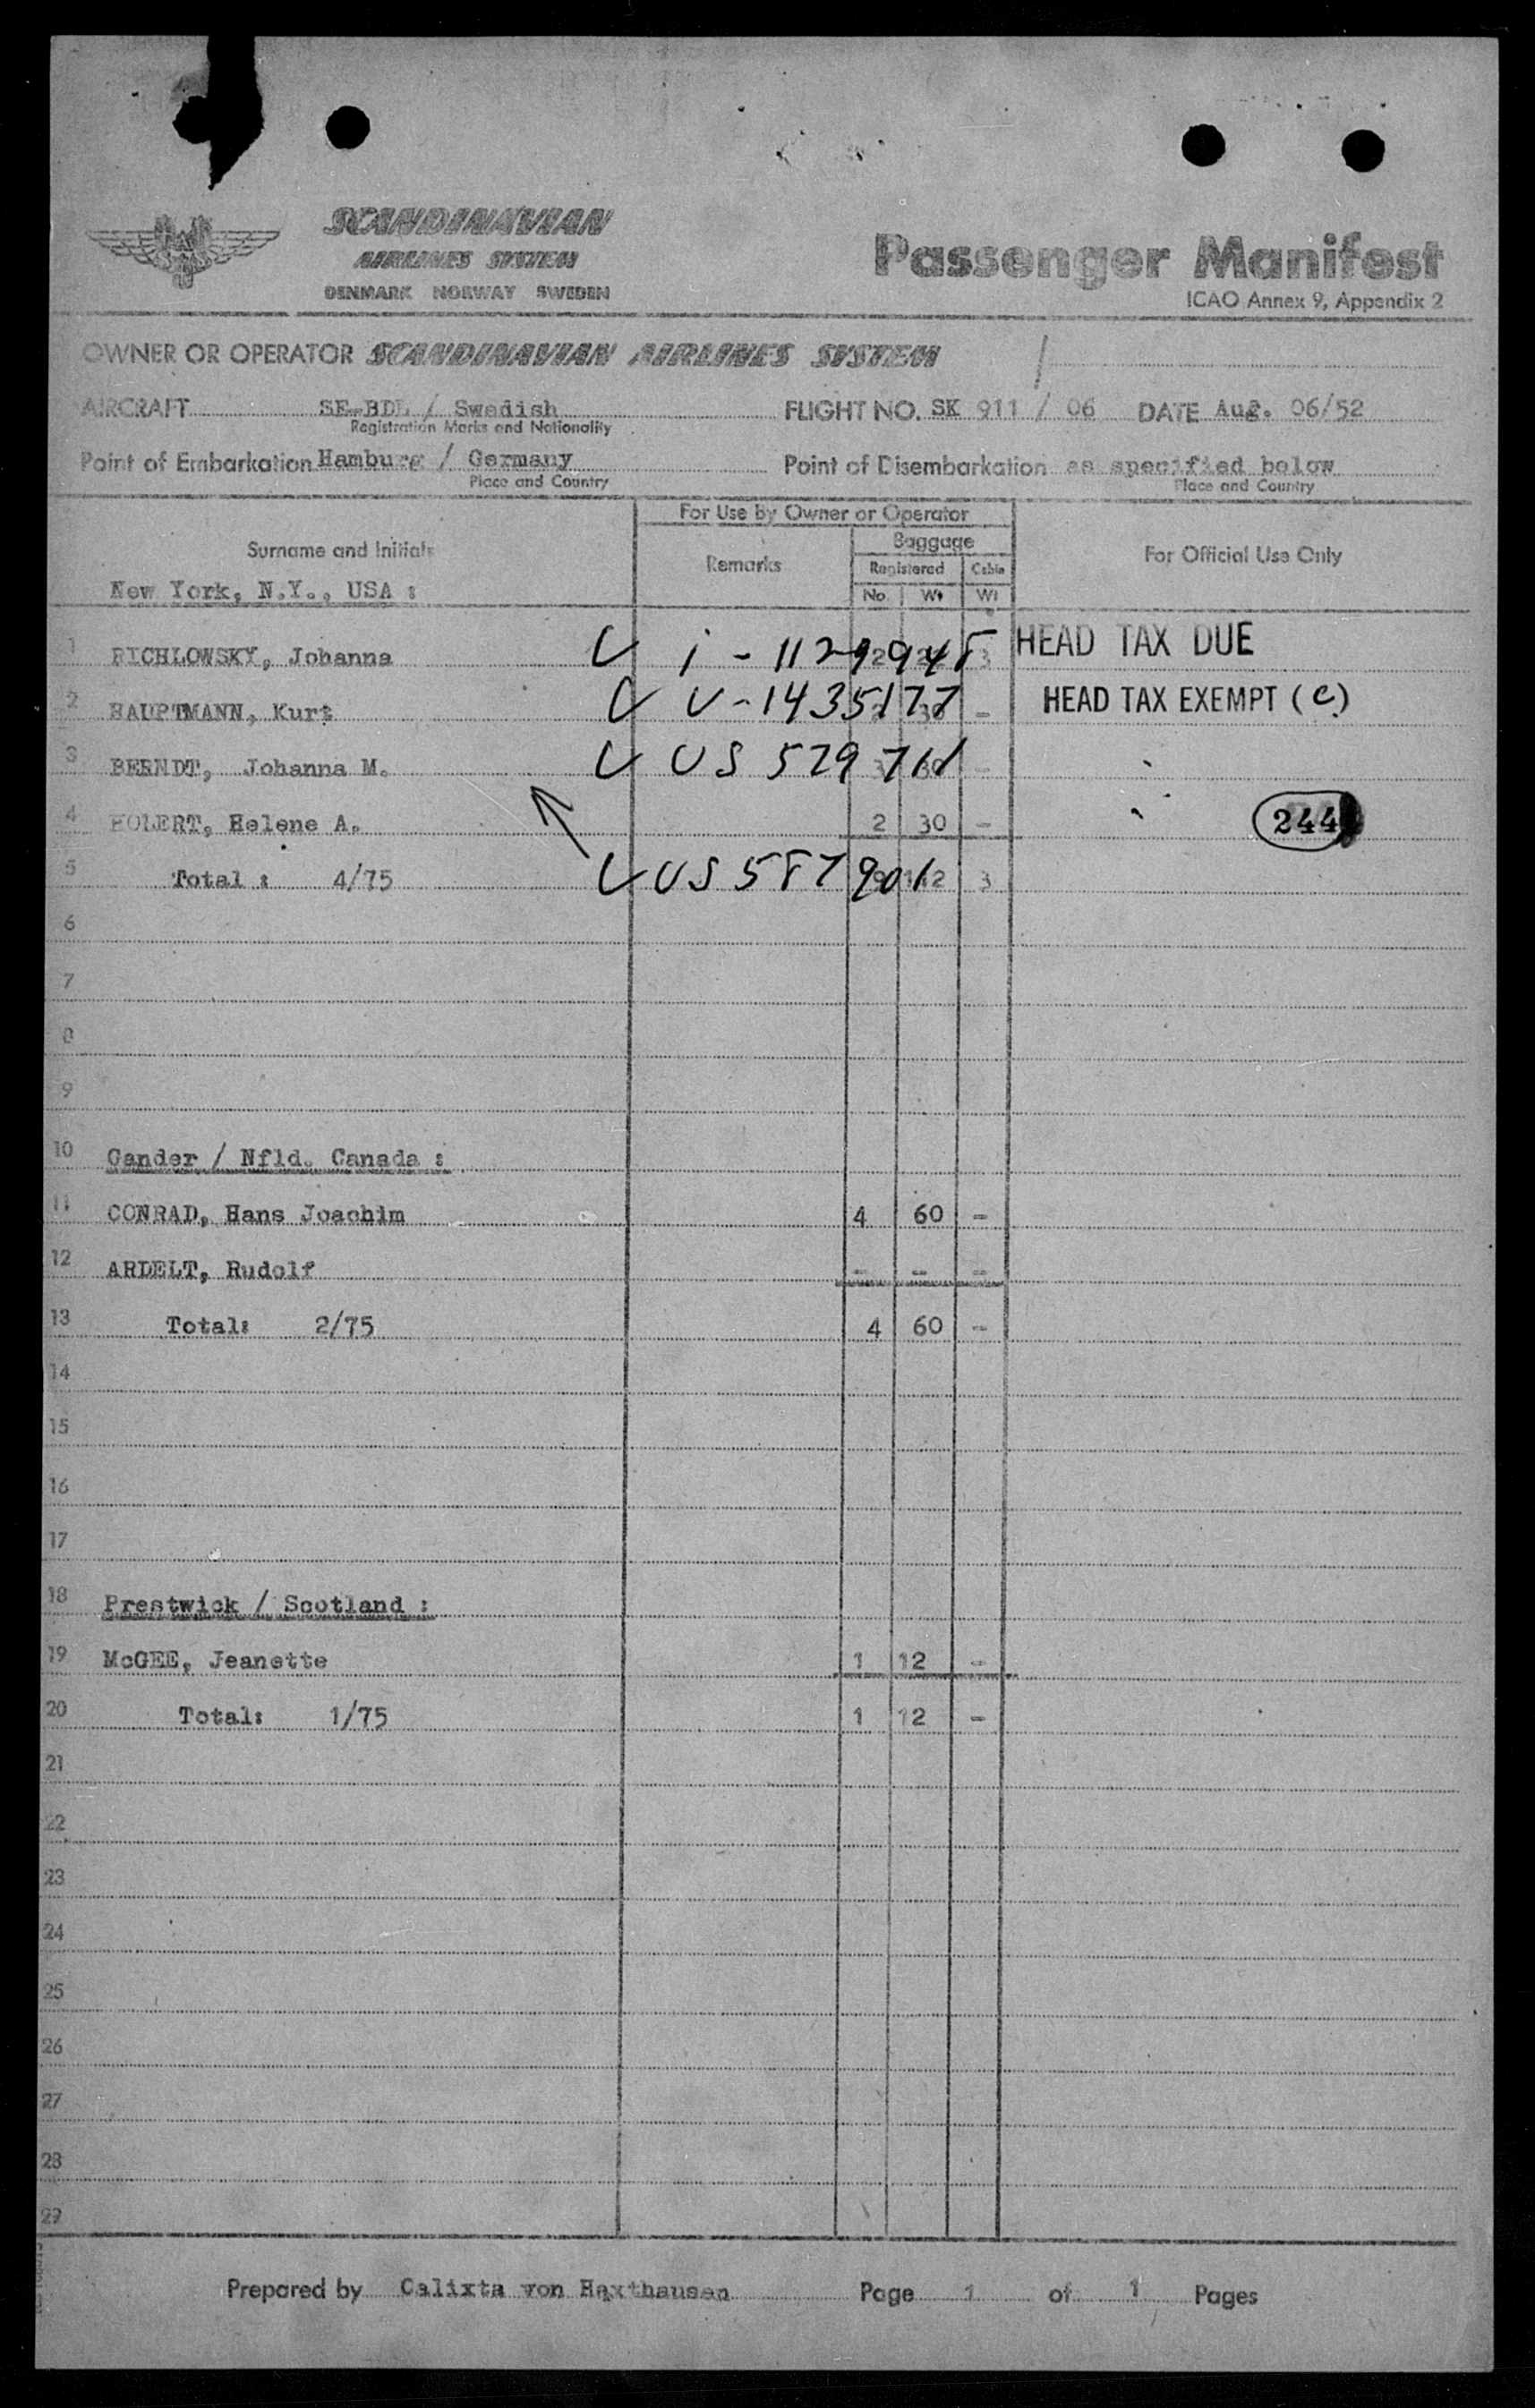 SCANDINAVIAN
AIRLINES SYSTEM
DENMARK NORWAY SWEDEN
Passenger Manifest
ICAO Annex 9, Appendix 2
OWNER OR OPERATOR SCANDINAVIAN AIRLINES SYSTEM
AIRCRAFT SE-BDL / Swedish FLIGHT NO. SK 911 / 06 DATE Aug. 06/52
Registration Marks and Nationality
Point of Embarkation Hamburg / Germany Point of Disembarkation as specified below
Place and Country Place and Country
For Use by Owner or Operator
Surname and Initials Remarks Baggage For Official Use Only
Registered Cabin
No. Wt Wt
New York, N.Y., USA :
1 RICHLOWSKY, Johanna i - 1129945 3 HEAD TAX DUE
2 HAUPTMANN, Kurt V-1435177 - HEAD TAX EXEMPT (c)
3 BERNDT, Johanna M. US 529 761 -
4 HOLERT, Helene A. 2 30 - 244
5 Total : 4/75 US 587 901 3
6
7
8
9
10 Gander / Nfld. Canada :
11 CONRAD, Hans Joachim 4 60 -
12 ARDELT, Rudolf - - -
13 Total: 2/75 4 60 -
14
15
16
17
18 Prestwick / Scotland :
19 McGEE, Jeanette 1 12 -
20 Total: 1/75 1 12 -
21
22
23
24
25
26
27
28
29
Prepared by Calixta von Haxthausen Page 1 of 1 Pages